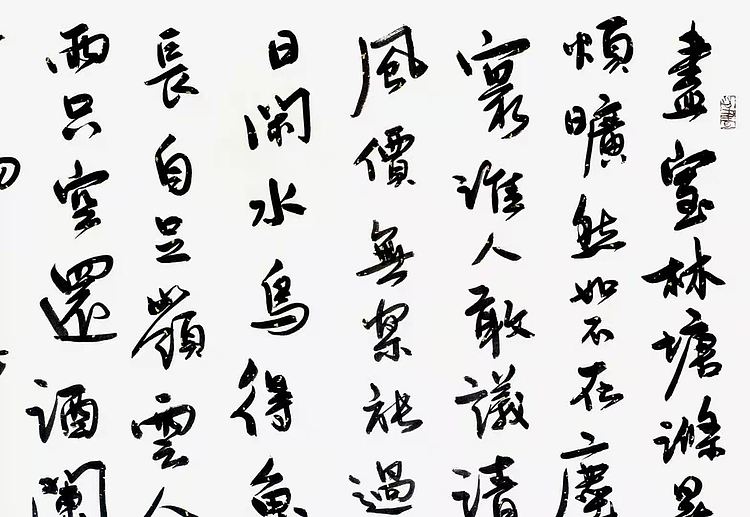 盡室林塘滌暑
煩曠然如不在塵
寰誰人敢議清
風價無樂能過
日閑水鳥得魚
長自足嶺雲
雨只空還酒闌